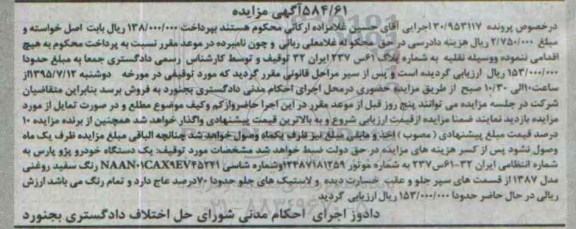 ۵۸۴/۶۱آگهی مزایده
درخصوص پرونده ۳۰/۹۵۳۱۱۷ اجرایی آقای حسین غلامزاده ارکانی محکوم هستند بپرداخت ۱۳۸/۰۰۰/۰۰۰ ریال بابت اصل خواسته و
مبلغ ۲/۷۵۰/۰۰۰ ریال هزینه دادرسی در حق محکوم له غلامعلی ربانی و چون نامبرده در موعد مقرر نسبت به پرداخت محکوم به هیچ
اقدامی ننموده ووسیله نقلیه به شماره پلاک ۶۱س ۲۳۷ ایران ۳۲ توقیف و توسط کارشناس رسمی دادگستری جمعا به مبلغ حدودا
۱۵۳/۰۰۰/۰۰۰ ریال ارزیابی گردیده است و پس از سیر مراحل قانونی مقرر گردید که مورد توقیفی در مورخه دوشنبه ۱۳۹۵/۷/۱۲از
ساعت۱۰الی ۱۰/۳۰ صبح از طریق مزایده حضوری درمحل اجرای احکام مدنی دادگستری بجنورد به فروش برسد بنابراین متقاضیان
شرکت در جلسه مزایده می توانند پنج روز قبل از موعد مقرر در این اجرا حاضروازکم وکیف موضوع مطلع و در صورت تمایل از مورد
مزایده بازدید نمایند ضمنا مزایده ازقیمت ارزیابی شروع و به بالاترین قیمت پیشنهادی واگذار خواهد شد همچنین از برنده مزایده ۱۰
درصد قیمت مبلغ پیشنهادی ( مصوب ) اخذ و مابقی مبلغ نیز ظرف یکماه وصول خواهد شد چنانچه الباقی مبلغ مزایده ظرف یک ماه
وصول نشود پس از کسر هزینه های مزایده در حق دولت ضبط خواهد شد مشخصات مورد توقیف: یک دستگاه خودرو پژو پارس به
شماره انتظامی ایران ۳۲-۶۱س۲۳۷ به شماره موتور ۱۲۴۸۷۱۸۱۲۵۹وشماره شاسی NAAN۰۱CAX۹EV۴۵۲۴۱ رنگ سفید روغنی
مدل ۱۳۸۷ از قسمت های سپر جلو و عقب خسارت دیده و لاستیک های جلو حدودا ۷۰درصد عاج دارد و تمام رنگ می باشد ارزش
ریالی در حال حاضر حدودا ۱۵۳/۰۰۰/۰۰۰ ریال ارزیابی گردید
دادورز اجرای احکام مدنی شورای حل اختلاف دادگستری بجنورد